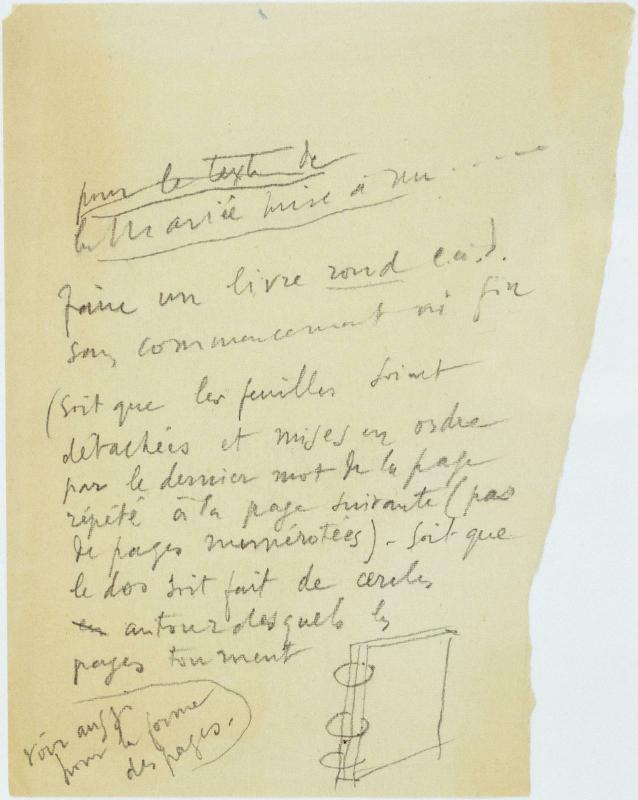 pour le texte de
la Mariée mise à nu ......
Faire un livre rond c.à.d.
sans commencement ni fin
(soit que les feuilles soient
détachées et mises en ordre
par le dernier mot de la page
répété à la page suivante (pas
de pages numérotées) - soit que
le dos soit fait de cercles
autour desquels les
pages tournent
voir aussi
pour la forme
des pages.